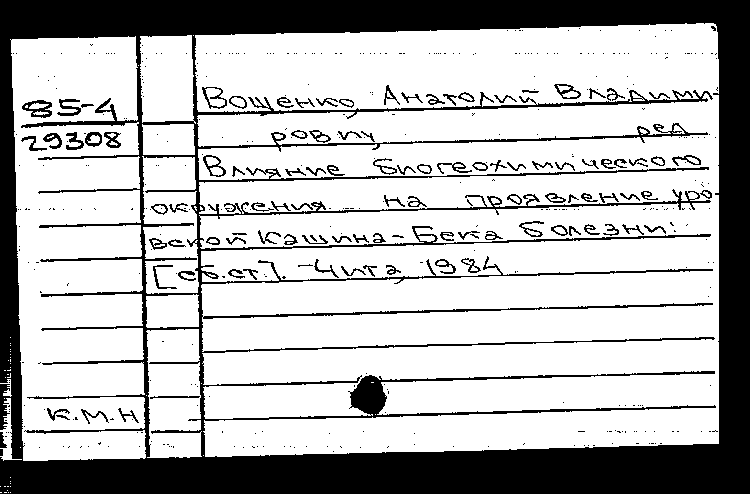 85-4
29308
Вощенко, Анатолий Владими-
рович, ред
Влияние биогеохимического
окружения на проявление уро-
вской Кашина-Бека болезни:
[сб.ст]. - Чита, 1984
К.М.Н